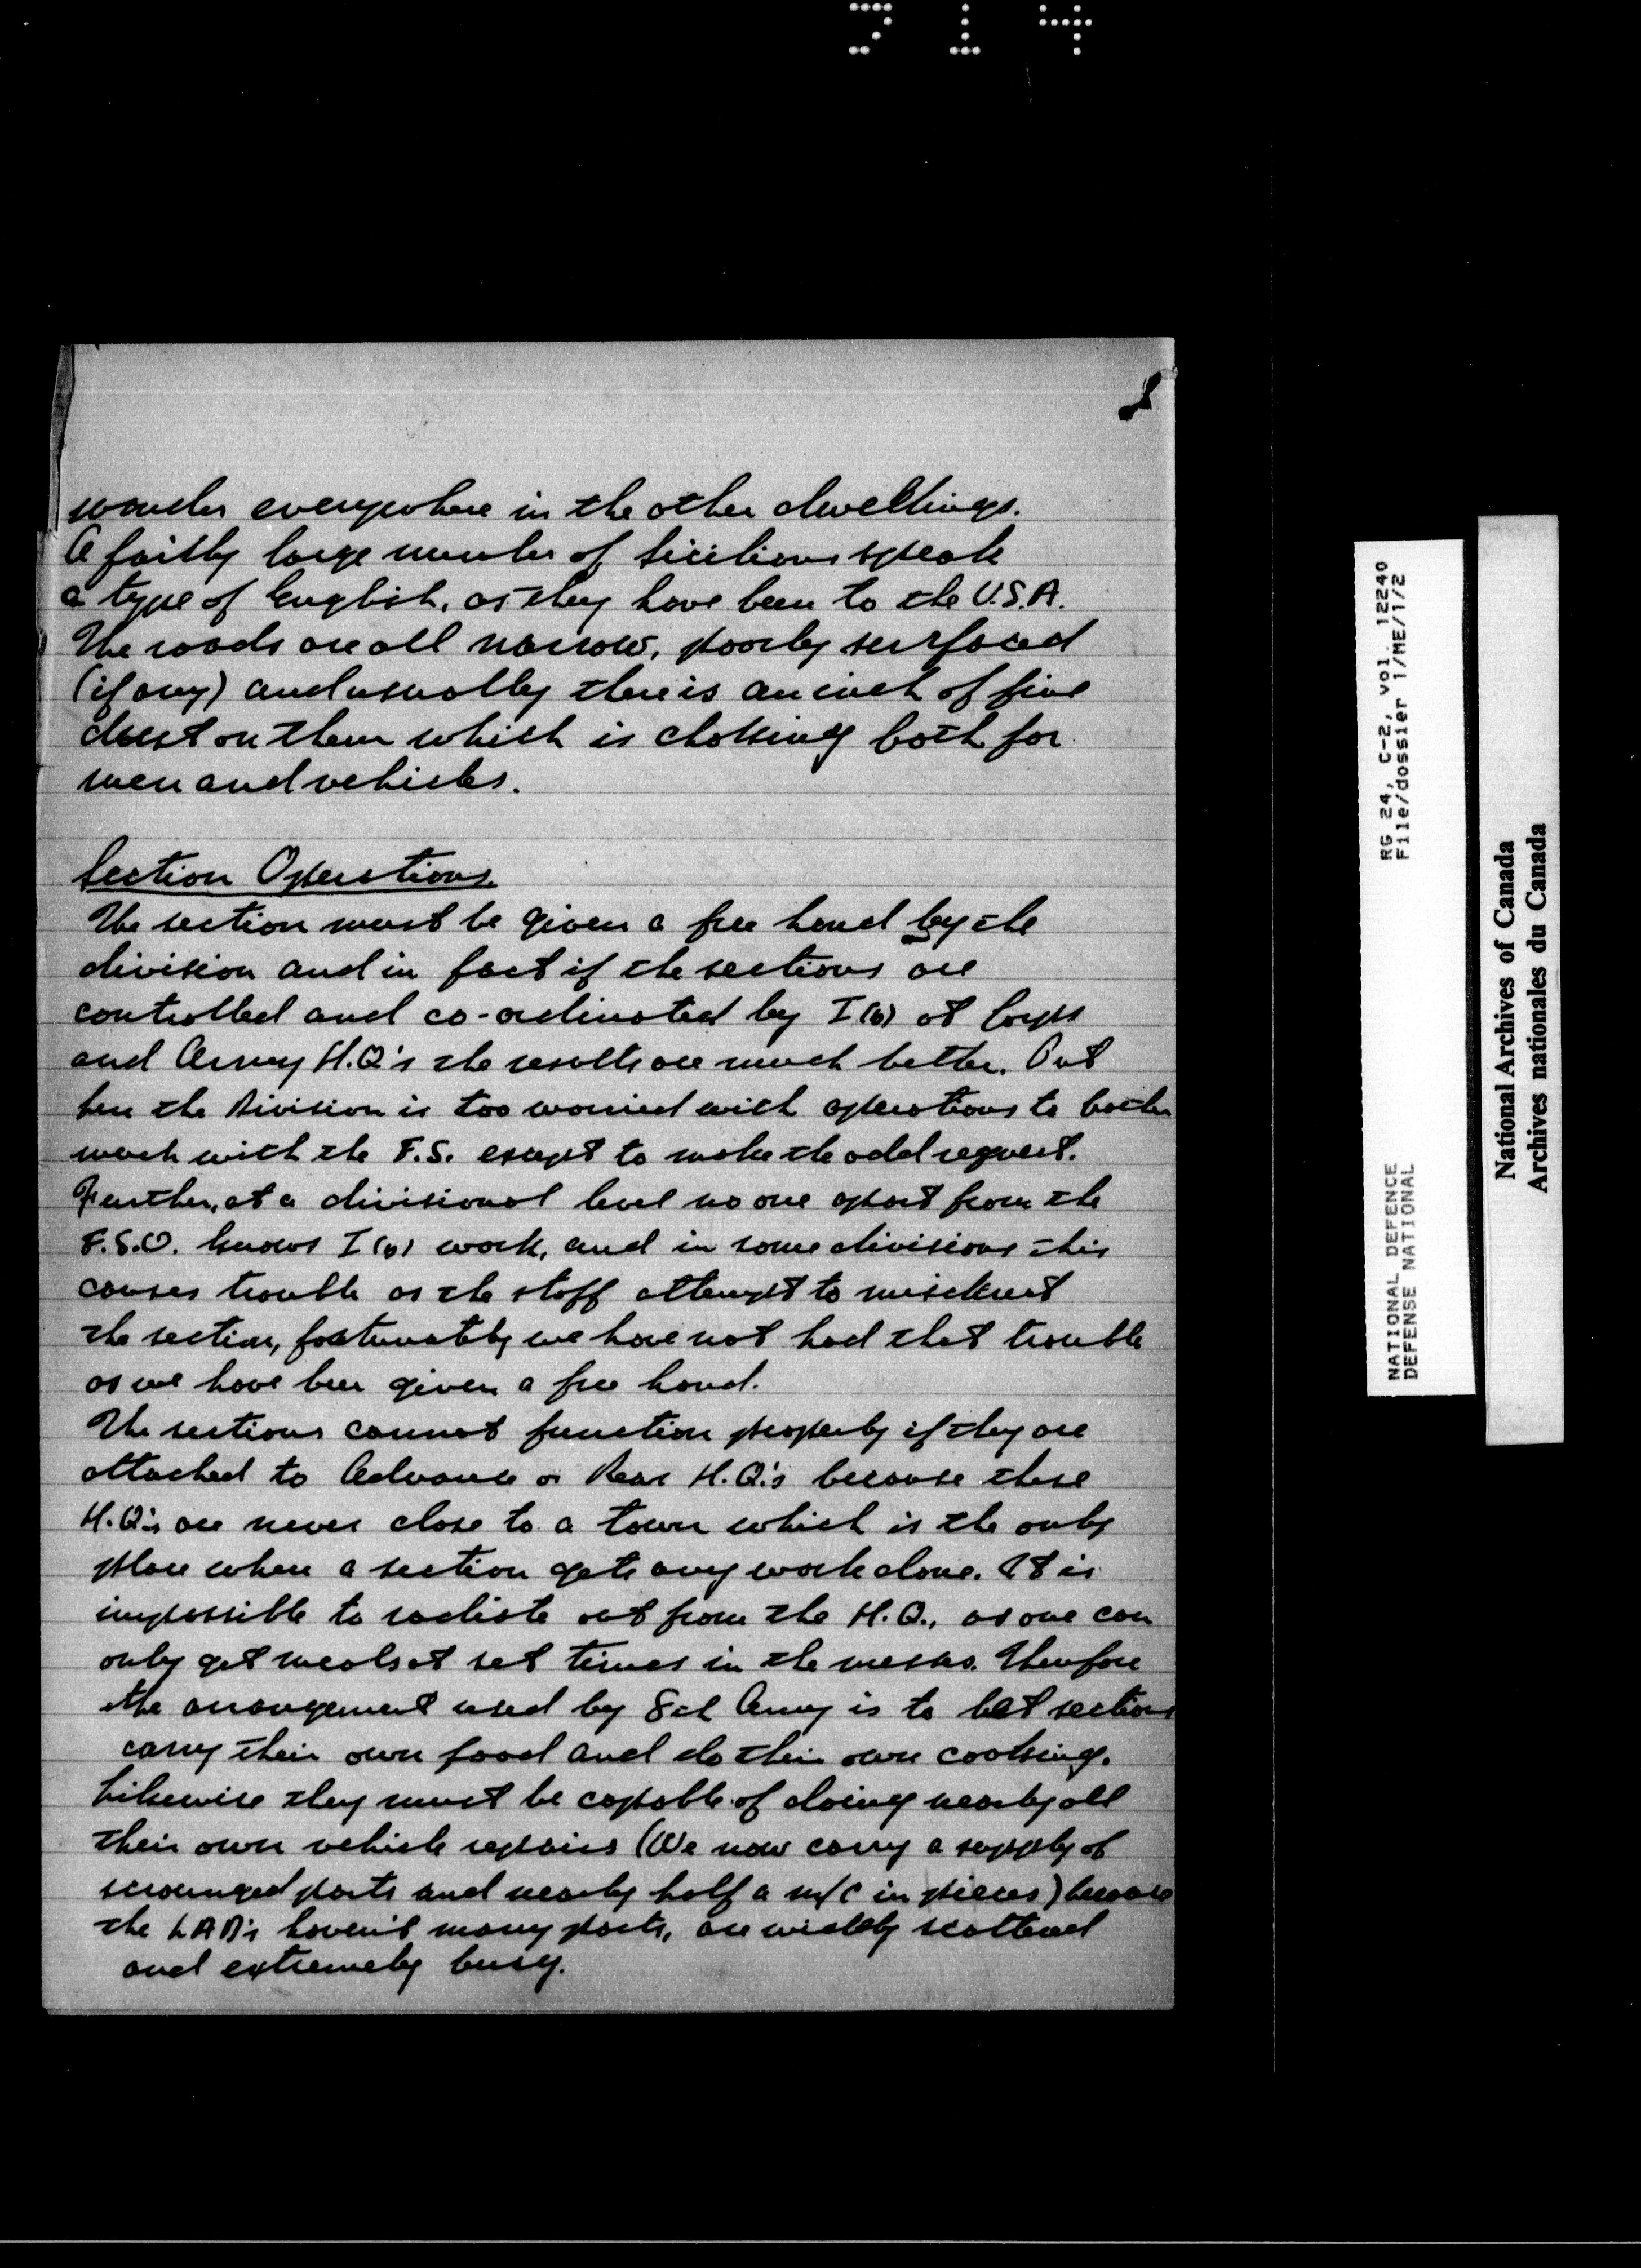 314
wander everywhere in the other dwellings.
A fairly large number of Sicilians speak
a type of English, as they have been to the U.S.A.
The roads are all narrow, poorly surfaced
(if any) and usually there is an inch of fine
dust on them which is choking both for
men and vehicles.
Section Operations.
The section must be given a free hand by the
division and in fact if the sections are
controlled and co-ordinated by I(b) at Corps
and Army H.Q's the results are much better. Out
here the Division is too worried with operations to bother
much with the F.S. except to make the odd request.
Further, at a divisional level no one apart from the
F.S.O. knows I(b) work, and in some divisions this
causes trouble as the staff attempt to
the section, fortunately we have not had that trouble
as we have been given a free hand.
The sections cannot function properly if they are
attached to Advance or Rear H.Q.'s because these
H.Q.'s are never close to a town which is the only
place where a section gets any work done. It is
impossible to radiate out from the H.Q., as one can
only get meals at set times in the messes. Therefore
the arrangement used by 8th Army is to let sections
carry their own food and do their own cooking.
Likewise they must be capable of doing nearly all
their own vehicle repairs (We now carry a supply of
scrounged parts and nearly half a m/c in pieces) because
the LAD's haven't many parts, are widely scattered
and extremely busy.
RG 24, C-2, vol. 12240
File/dossier 1/ME/1/2
NATIONAL DEFENCE
DEFENSE NATIONAL
National Archives of Canada
Archives nationales du Canada